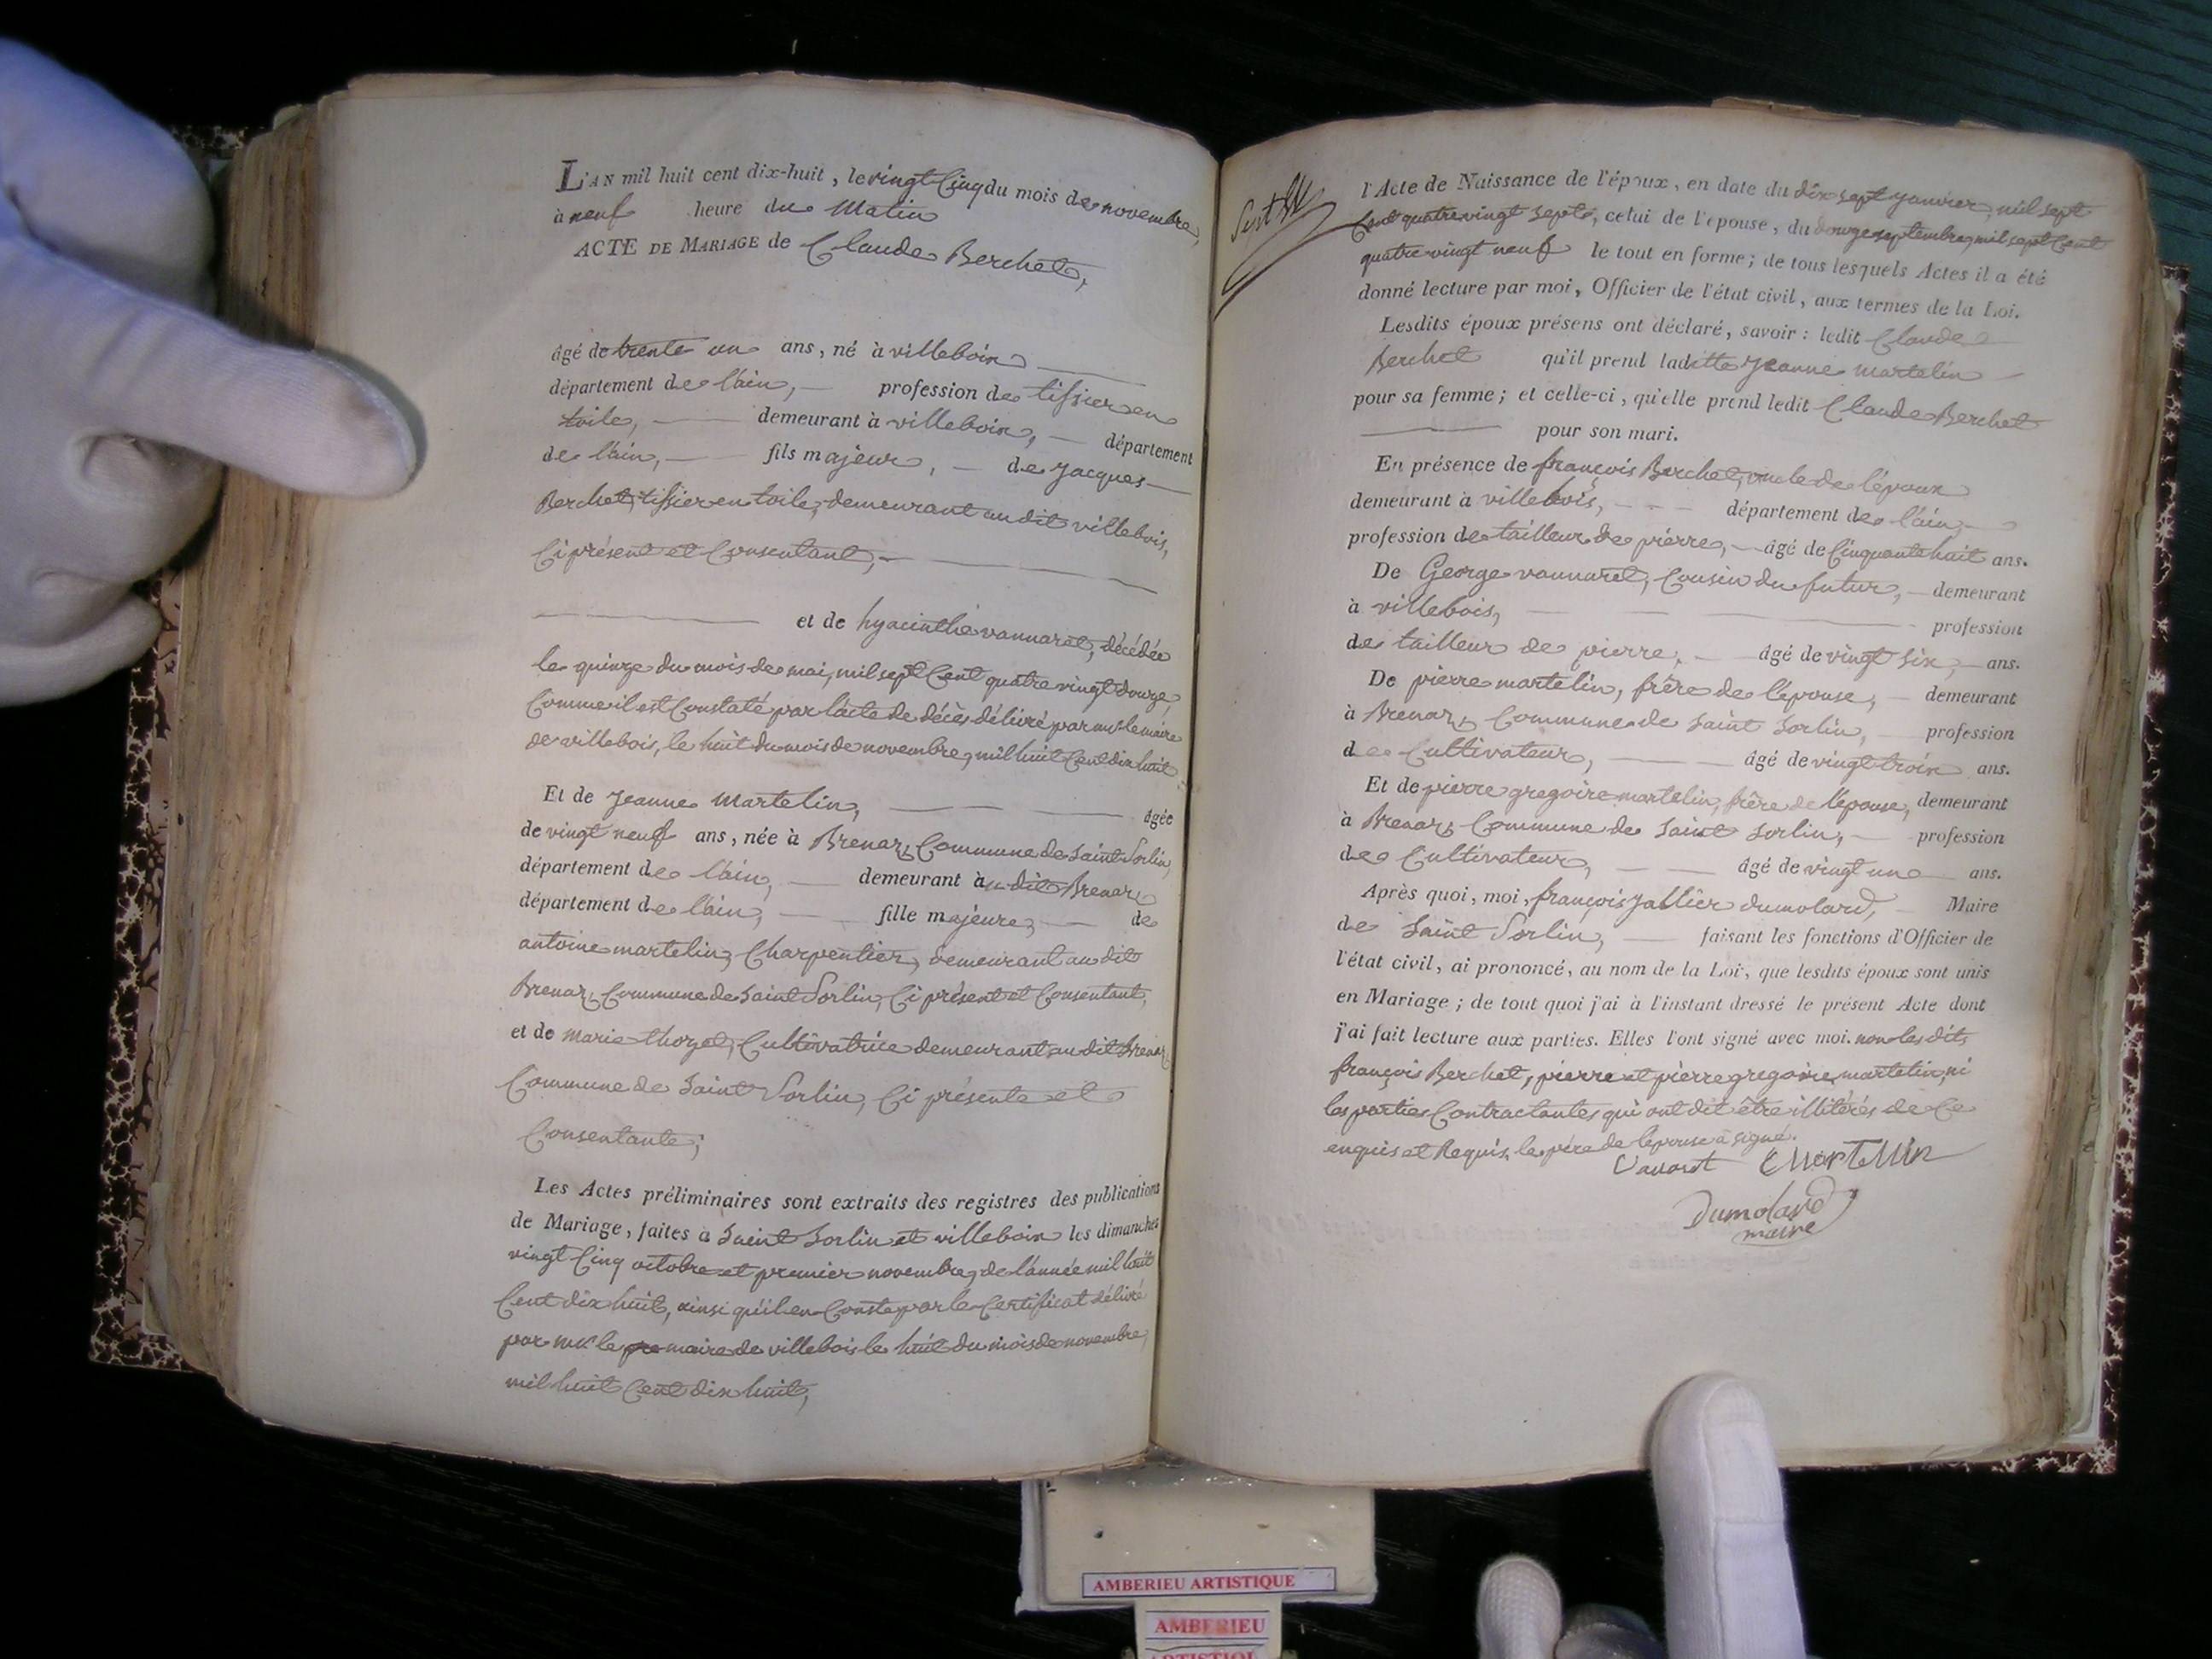 L'AN mil huit cent dix-huit, le vingt Cinq du mois de novembre,
à neuf heure du Matin
ACTE DE MARIAGE de Claude Berchet,
âgé de trente un ans, né à villebois
département de l'ain, profession de tissier en
toile, demeurant à villebois, département
de l'ain, fils majeur, de jacques
Berchet, tissier en toile, demeurant au dit villebois,
Ci présent et Consentant,
et de hyacinthe vannaret, décédée
le quinze du mois de mai, mil sept Cent quatre vingt douze,
Comme il est Constaté par l'acte de décès délivré par mr le maire
de villebois, le huit du mois de novembre, mil huit Cent dix huit
Et de Jeanne Martelin, âgée
de vingt neuf ans, née à Brenaz, Commune de Saint Sorlin,
département de l'ain, demeurant au dit Brenaz
département de l'ain, fille majeure, de
antoine martelin, Charpentier, demeurant au dit
Brenaz, Commune de Saint Sorlin, Ci présent et Consentant,
et de marie thozet, Cultivatrice demeurant au dit Brenaz,
Commune de Saint Sorlin, Ci présente et
Consentante;
Les Actes préliminaires sont extraits des registres des publications
de Mariage, faites à Saint Sorlin et villebois les dimanches
vingt Cinq octobre et premier novembre, de l'année mil huit
Cent dix huit, ainsi qu'il en Conste par le Certificat délivré
par mr le maire de villebois le huit du mois de novembre,
mil huit Cent dix huit,
l'Acte de Naissance de l'époux, en date du dix sept janvier, mil sept
Cent quatre vingt sept, celui de l'épouse, du douze septembre, mil sept Cent
quatre vingt neuf le tout en forme; de tous lesquels Actes il a été
donné lecture par moi, Officier de l'état civil, aux termes de la Loi.
Lesdits époux présens ont déclaré, savoir: ledit Claude
Berchet qu'il prend laditte jeanne martelin
pour sa femme; et celle-ci, qu'elle prend ledit Claude Berchet
pour son mari.
En présence de françois Berchet, oncle de l'époux
demeurant à villebois, département de l'ain,
profession de tailleur de pierre, âgé de Cinquante huit ans.
De George vannaret, Cousin du futur, demeurant
à villebois, profession
de tailleur de pierre, âgé de vingt six, ans.
De pierre martelin, frère de l'épouse, demeurant
à Brenaz, Commune de Saint Sorlin, profession
de Cultivateur, âgé de vingt trois ans.
Et de pierre gregoire martelin, frère de l'épouse, demeurant
à Brenaz, Commune de Saint Sorlin, profession
de Cultivateur, âgé de vingt une ans.
Après quoi, moi, françois jallier dumolard, Maire
de Saint Sorlin, faisant les fonctions d'Officier de
l'état civil, ai prononcé, au nom de la Loi, que lesdits époux sont unis
en Mariage; de tout quoi j'ai à l'instant dressé le présent Acte dont
j'ai fait lecture aux parties. Elles l'ont signé avec moi. non les dits
françois Berchet, pierre et pierre gregoire martelin, ni
les parties Contractantes qui ont dit être illitérés de Ce
enquis et Requis, le père de l'épouse à signé.
Martelin
Dumolard
maire
AMBERIEU ARTISTIQUE
AMBERIEU
ARTISTIQUE